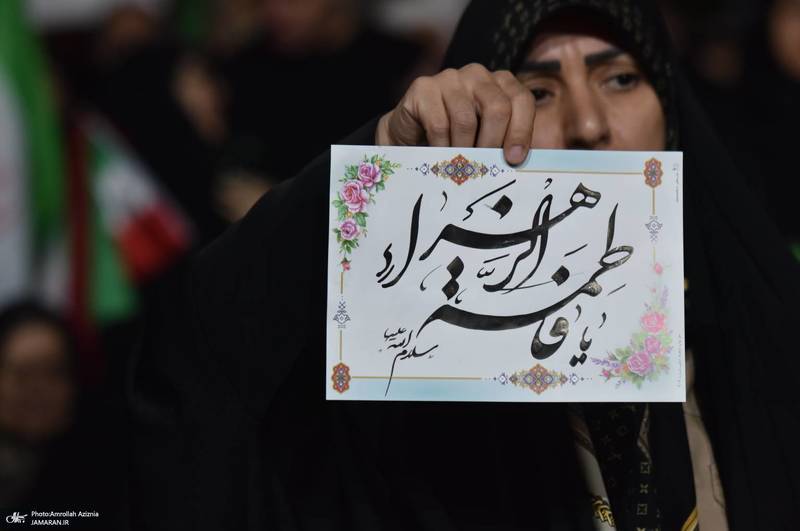 یا فاطمة الزهراء
سلام الله علیها
Photo:Amrollah Aziznia
JAMARAN.IR